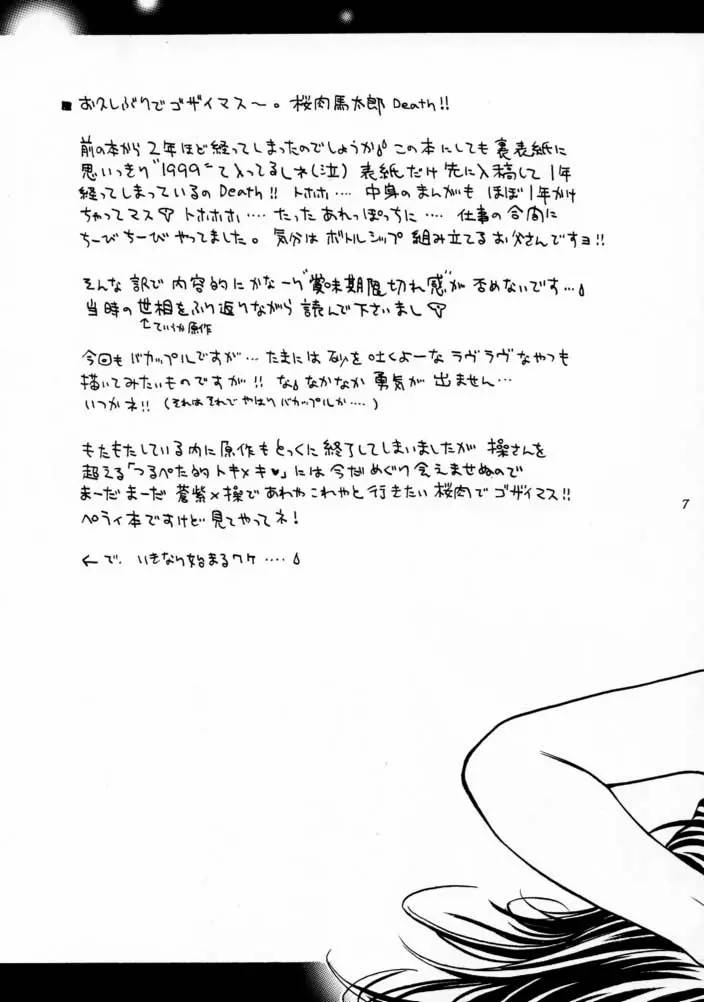 ■ お久しぶりでゴザイマス〜。桜肉馬太郎 Death!!
前の本から2年ほど経ってしまったのでしょうか この本にしても裏表紙に
思いっきり"1999"て入ってるしネ(泣)表紙だけ先に入稿して1年
経ってしまっているのDeath!! トホホ‥‥ 中身のまんがも ほぼ1年かけ
ちゃってマス トホホホ‥‥ たったあれっぽっちに‥‥ 仕事の合間に
ちーびちーびやってました。気分はボトルシップ組み立てるお父さんですヨ!!
そんな訳で内容的にかな〜り"賞味期限切れ感"が否めないです…
当時の世相をふり返りながら読んで下さいまし
←ていうか原作
今回もバカップルですが… たまには砂を吐くよーなラヴラヴなやつも
描いてみたいものですが!! な なかなか勇気が出ません…
いつかネ!! (それはそれでやはりバカップルか‥‥)
もたもたしている内に原作もとっくに終了してしまいましたが 操さんを
超える「つるぺた的トキメキ♥」には今だめぐり会えませぬので
まーだまーだ 蒼紫×操であれやこれやと行きたい桜肉でゴザイマス!!
ペラィ本ですけど見てやってネ!
← で、いきなり始まるワケ‥‥
7